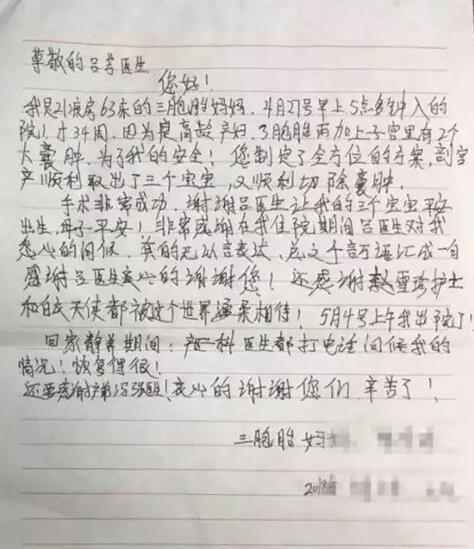 尊敬的吕芳医生
您好！
我是21病房63床的三胞胎妈妈，4月27号早上5点多钟入的
院！才34周，因为是高龄产妇，3胞胎再加上子宫里有2个
大囊肿，为了我的安全！您制定了全方位的方案，剖宫
产顺利取出了三个宝宝，又顺利切除囊肿。
手术非常成功，谢谢吕医生让我的三个宝宝平安
出生，母子平安！非常感谢在我住院期间吕医生对我
悉心的问候，真的无以言表达，总之千言万语汇成一句
感谢吕医生衷心的谢谢您！还感谢 护士
和白衣天使都被这个世界温柔相待！5月4号上午我出院了！
回家静养期间：产一科医生都打电话问候我的
情况！恢复得很！
还要感谢产 ！衷心的谢谢您们 辛苦了！
三胞胎妈
2018